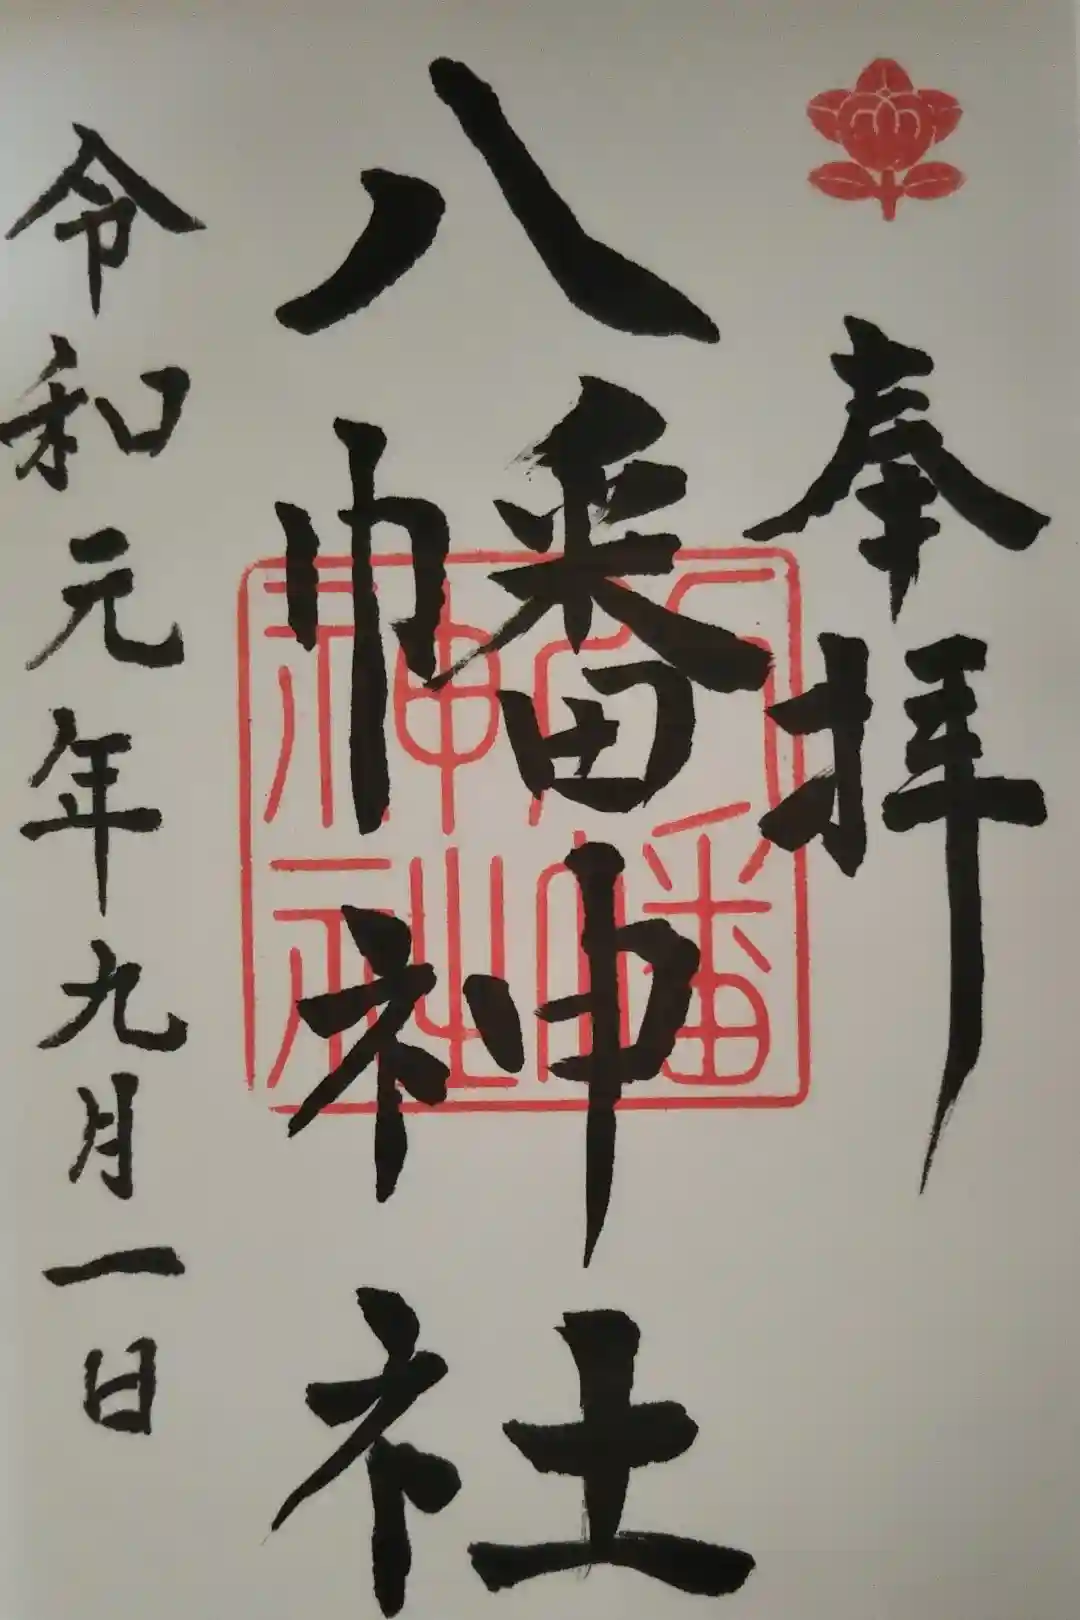 奉拝
八幡神社
八幡
神社
令和元年九月一日